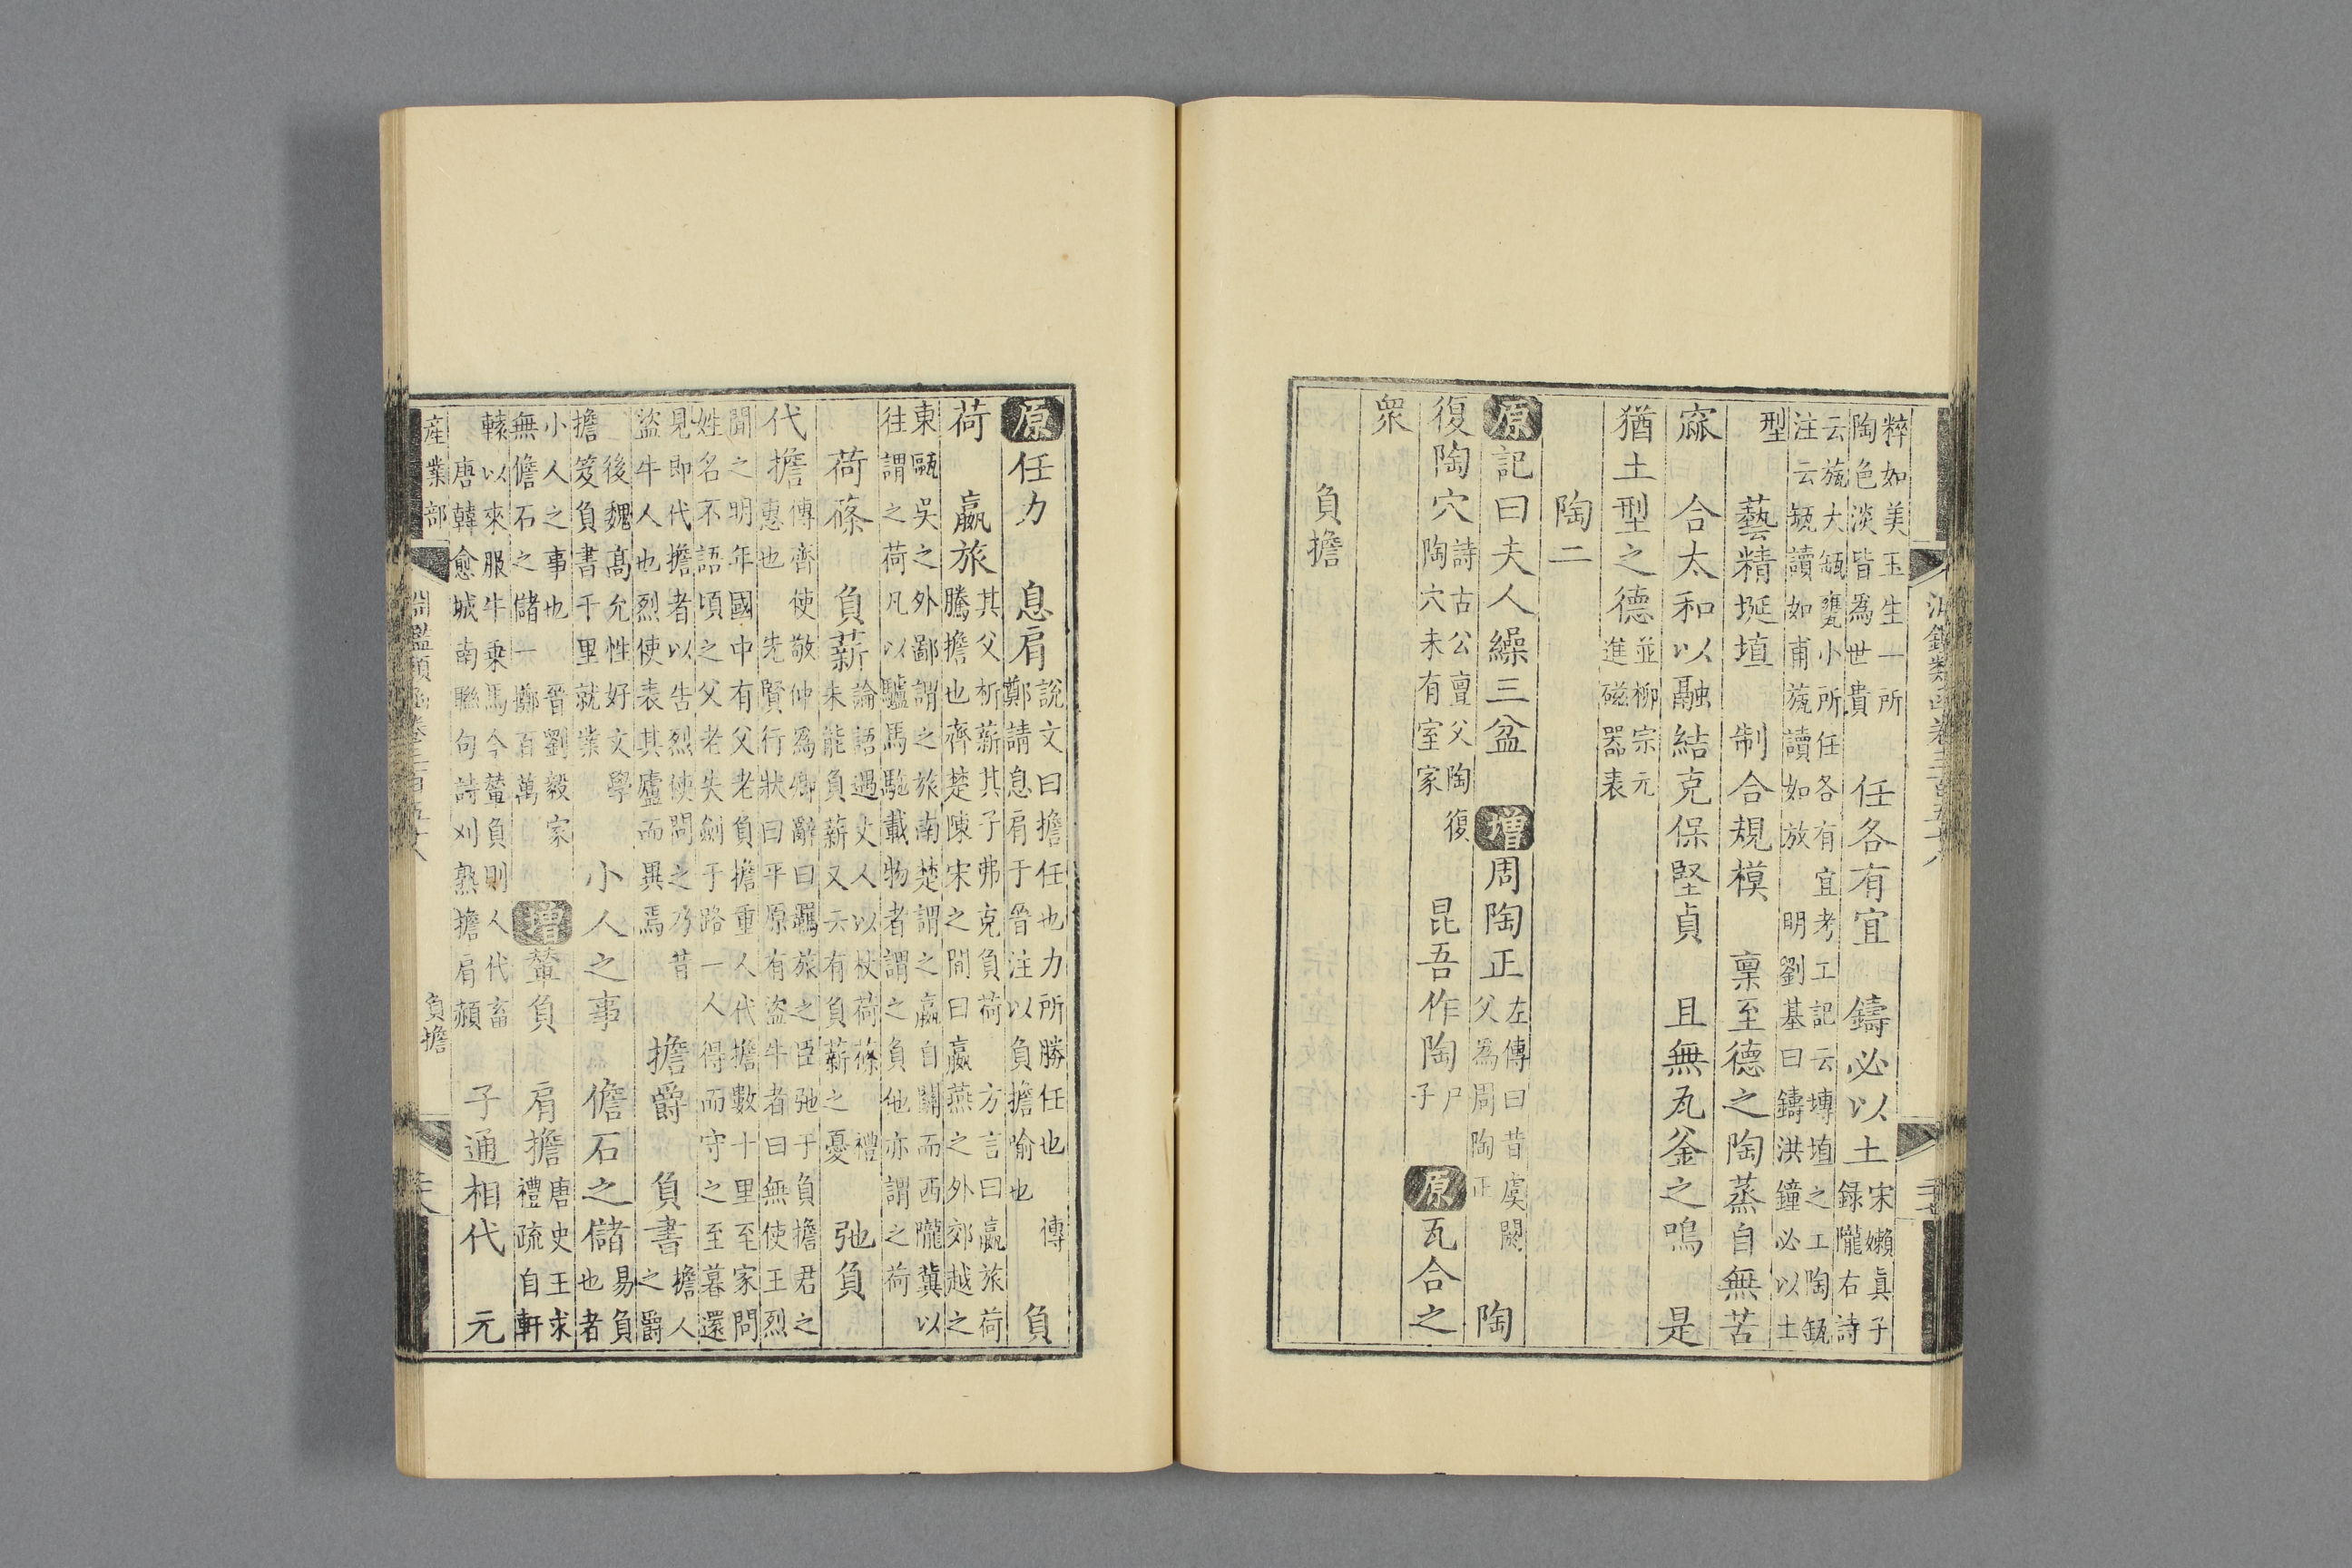 粹如美玉生一所
陶色淡皆為世貴
任各有宜　鑄必以土
宋嬾真子
録隴右詩
大瓴甕小所任各有宜考工記云塼埴之工陶瓬
讀如甫　讀如放　明劉基曰鑄洪鐘必以土
型　藝精埏埴　制合規模　禀至德之陶蒸自無苦
窳　合太和以融結克保堅貞　且無瓦釜之鳴　是
猶土型之德
並柳宗元
進磁器表
陶二
原記曰夫人繰三盆　增周陶正
左傳曰昔虞閼
父為周陶正
陶
復陶穴
詩古公亶父陶復
陶穴未有室家
昆吾作陶
尸
子
原瓦合之
衆
負擔
原任力　息肩
說文曰擔任也力所勝任也　傳
鄭請息肩于晉注以負擔喻也
負
荷　嬴旅
其父析薪其子弗克負荷　方言曰嬴旅荷
騰擔也齊楚陳宋之間曰嬴燕之外郊越之
東甌吳之外鄙謂之旅南楚謂之嬴自關而西隴冀以
往謂之荷凡以驢馬馳載物者謂之負他亦謂之荷
荷蓧　負薪
論語遇丈人以杖荷蓧　禮
未能負薪又云有負薪之憂
弛負
代擔
傳齊使敬仲為卿辭曰羈旅之臣弛于負擔君之
惠也　先賢行狀曰平原有盜牛者曰無使王烈
聞之明年國中有父老負擔重人代擔數十里至家問
姓名不語頃之父老失劍于路一人得而守之至暮還
見即代擔者以告烈使問之乃昔
盜牛人也烈使表其廬而異焉
擔爵　負書
擔人
之爵
後魏高允性好文學
擔笈負書千里就業
小人之事　儋石之儲
易負
也者
小人之事也　晉劉毅家
無儋石之儲一擲百萬
增輦負　肩擔
唐史王求
禮疏自軒
轅以來服牛乗馬今輦負則人代畜
唐韓愈城南聯句詩刈熟擔肩赬
子通相代　元
産業部　淵鑑類函卷三百五十八　負擔